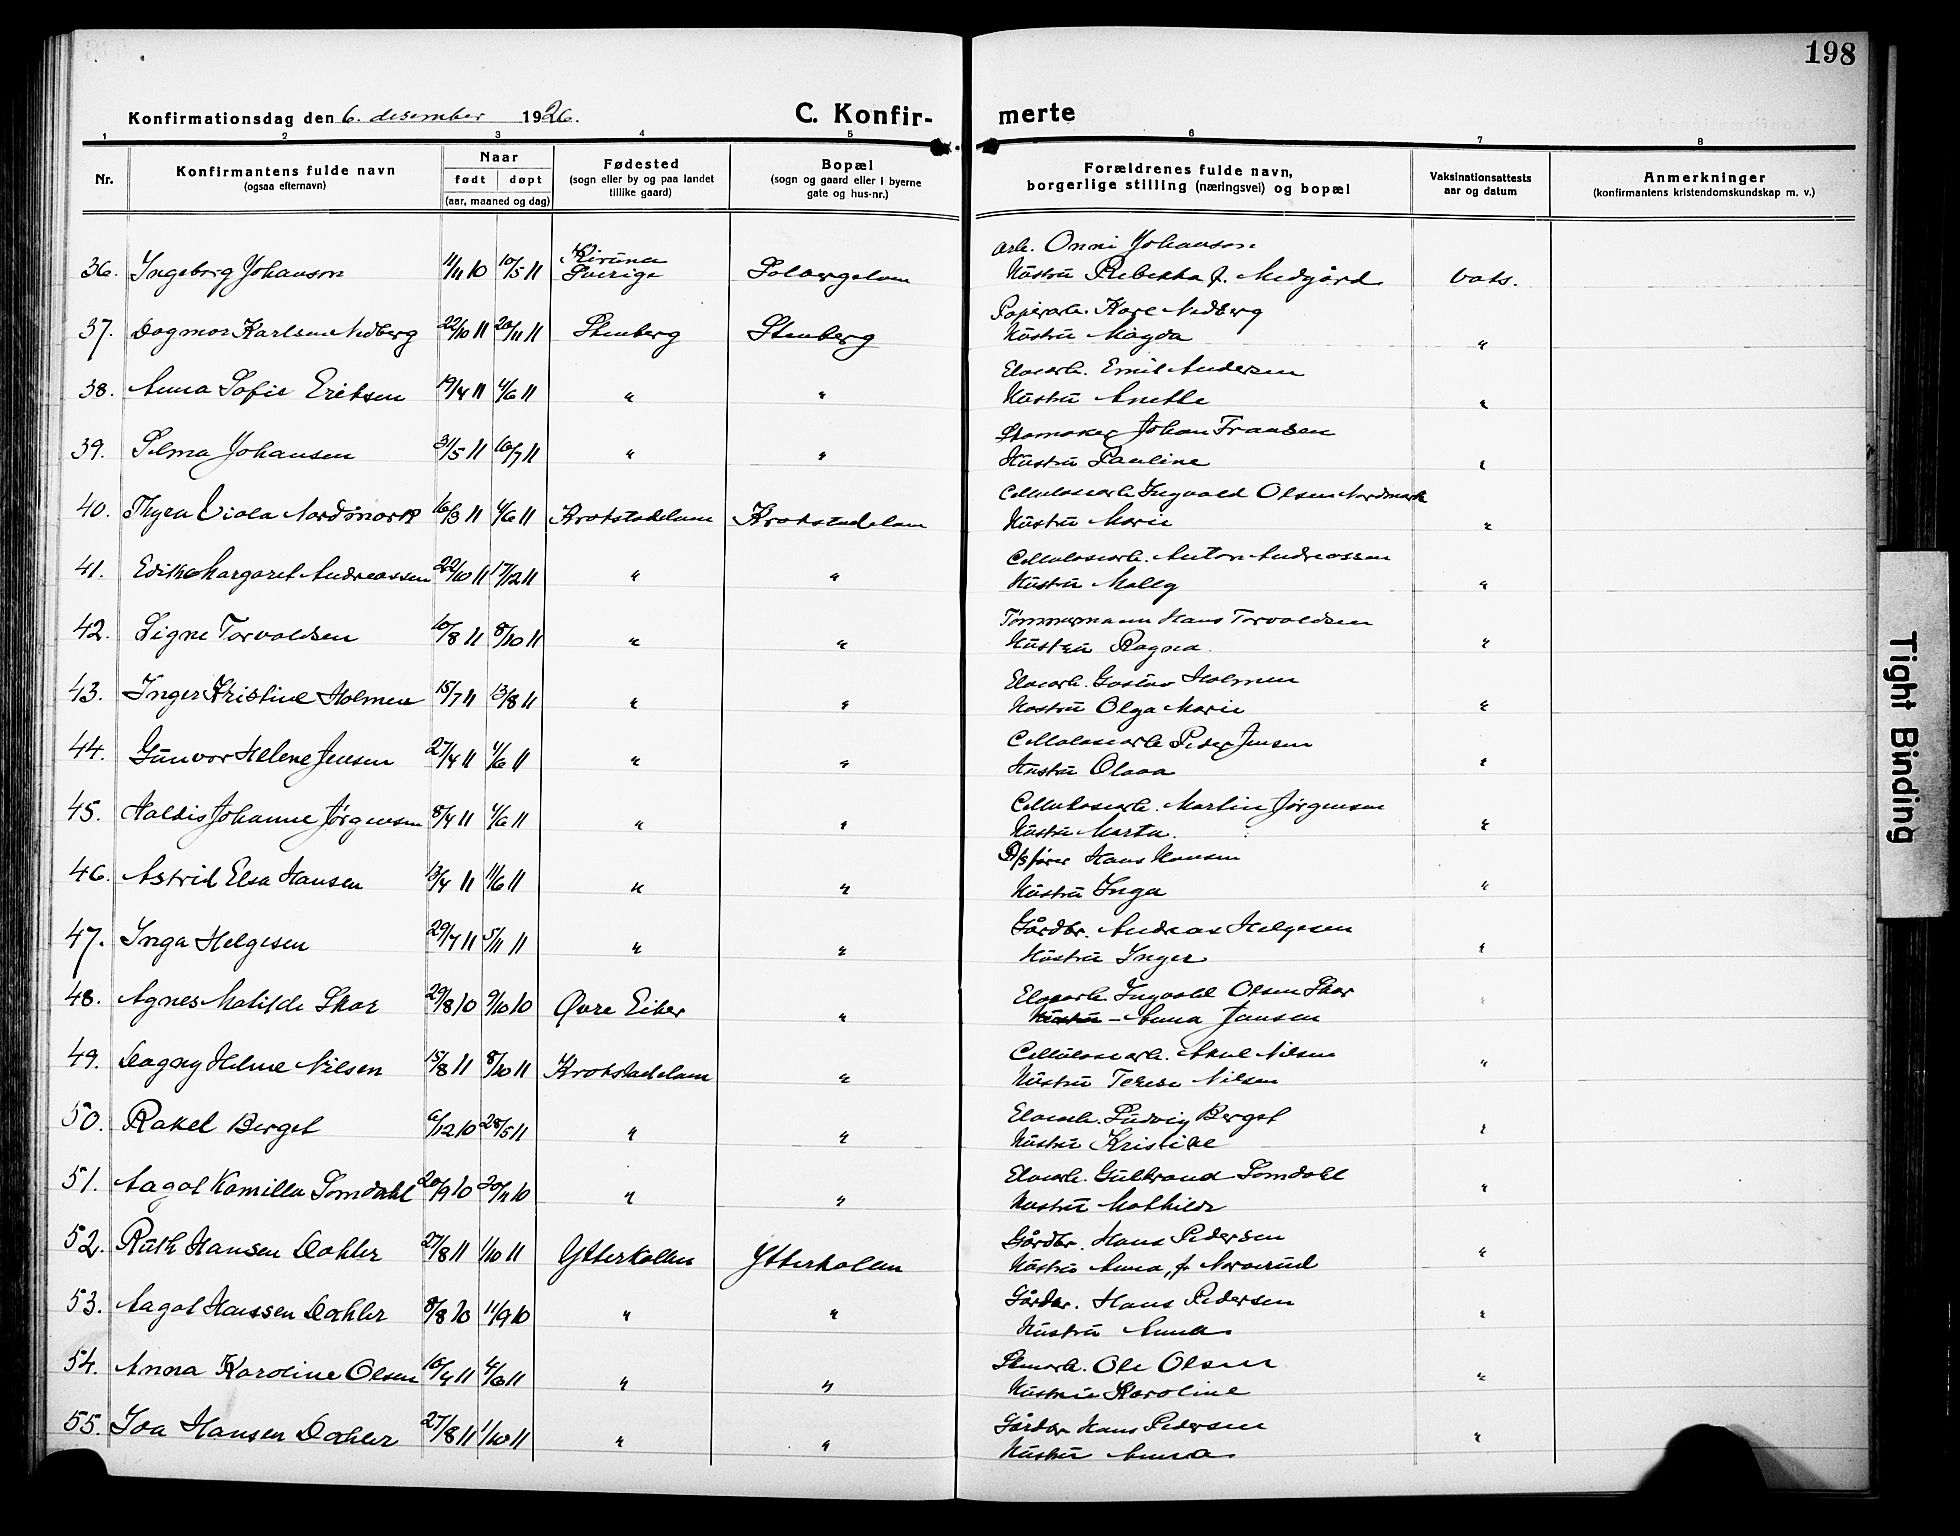 198
Konfirmationsdag den 6. desember 1926.
C. Konfirmerte
1 2 3 4 5 6 7 8
Nr.
Konfirmantens fulde navn
(ogsaa efternavn)
Naar
født døpt
(aar, maaned og dag)
Fødested
(sogn eller by og paa landet
tillike gaard)
Bopæl
(sogn og gaard eller i byerne
gate og hus-nr.)
Forældrenes fulde navn,
borgerlige stilling (næringsvei) og bopæl
Vaksinationsattests
aar og datum
Anmerkninger
(konfirmantens kristendomskundskap m. v.)
36. Ingeborg Johanson 11/11 10 10/5 11 Kiruna Sverige Solbergelven arb. Onni Johanson
Hustru Rebekka f. Medgård vaks.
37. Dagmar Karlsen Nedberg 22/10 11 26/11 11 Stenberg Stenberg Papirarb. Kare Nedberg
Hustru Magda "
38. Anna Sofie Eriksen 19/4 11 4/6 11 " " Elvearb. Emil Andersen
Hustru Anette "
39. Selma Johansen 31/5 11 16/7 11 " " Skomaker Johan Fransen
Hustru Pauline "
40. Thyra Viola Nordmark 16/3 11 4/6 11 Krokstadelven Krokstadelven Cellulosearb. Ingvald Olsen Nordmark
Hustru Marie "
41. Edith Margaret Andreassen 22/10 11 17/12 11 " " Cellulosearb. Anton Andreassen
Hustru Mally "
42. Signe Torvaldsen 10/8 11 8/10 11 " " Tømmermann Hans Torvaldsen
Hustru Ragna "
43. Inger Kristine Holmen 15/7 11 13/8 11 " " Elvearb. Gustav Holmen
Hustru Olga Marie "
44. Gunvor Helene Jensen 27/4 11 4/6 11 " " Cellulosearb. Peder Jensen
Hustru Olava "
45. Haldis Johanne Jørgensen 8/4 11 4/6 11 " " Cellulosearb. Martin Jørgensen
Hustru Marta. "
46. Astrid Elsa Hansen 13/4 11 11/6 11 " " D/s fører Hans Hansen
Hustru Inga "
47. Inga Helgesen 29/7 11 5/11 11 " " Gårdbr. Andreas Helgesen
Hustru Inger "
48. Agnes Matilde Skar 29/8 10 9/10 10 Øvre Eiker " Elvearb. Ingvald Olsen Skar
Hustru - Anna Jansen "
49. Dagny Helene Nilsen 15/8 11 8/10 11 Krokstadelven " Cellulosearb. Axel Nilsen
Hustru Terese Nilsen "
50. Rakel Berget 6/12 10 28/5 11 " " Elvearb. Ludvig Berget
Hustru Kristine "
51. Aagot Kamilla Somdahl 20/9 10 20/11 10 " " Elvearb. Gulbrand Somdahl
Hustru Mathilde "
52. Ruth Hansen Dahler 27/8 11 1/10 11 Ytterkollen Ytterkollen Gårdbr. Hans Pedersen
Hustru Anna, f. Narverud "
53. Aagot Hanssen Dahler 8/8 10 11/9 10 " " Gårdbr. Hans Pedersen
Hustru Anna "
54. Anna Karoline Olsen 10/4 11 4/6 11 " " Ole Olsen
Hustru Karoline "
55. Ioa Hansen Dahler 27/8 11 1/10 11 " " Gårdbr Hans Pedersen
Hustru Anna "
Tight Binding